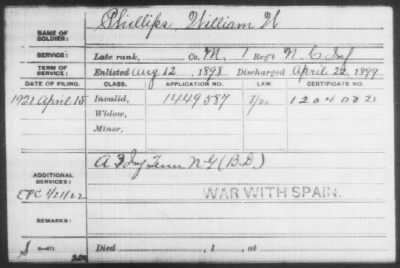 NAME OF SOLDIER: Phillips, William W
SERVICE: Late rank, Co. M, 1 Reg't N.C. Inf
TERM OF SERVICE: Enlisted Aug 12, 1898 Discharged April 22, 1899
DATE OF FILING. CLASS. APPLICATION NO. LAW. CERTIFICATE NO.
1921 April 15 Invalid, 1449087 1204002
Widow,
Minor,
ADDITIONAL SERVICES: A 3 Inf Tenn N G (B.D.)
WAR WITH SPAIN.
REMARKS:
Died , 1 , at